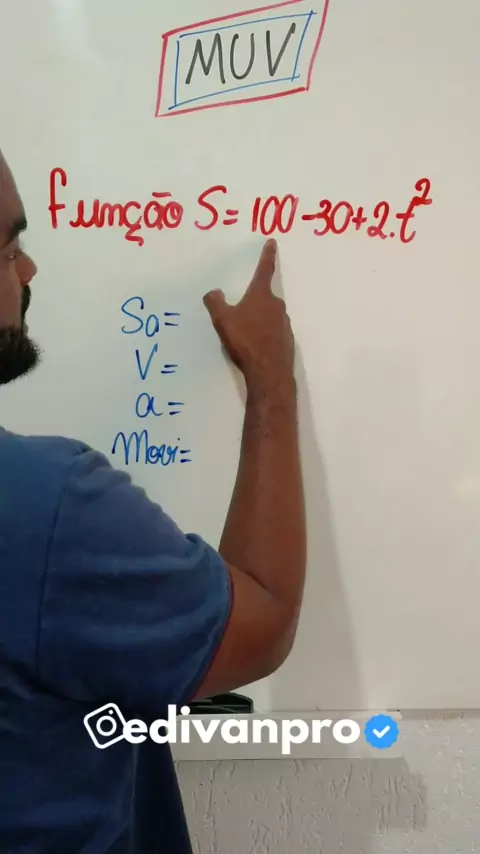 MUV
Função S= 100-30+2.t²
So=
V=
a=
Movi=
edivanpro